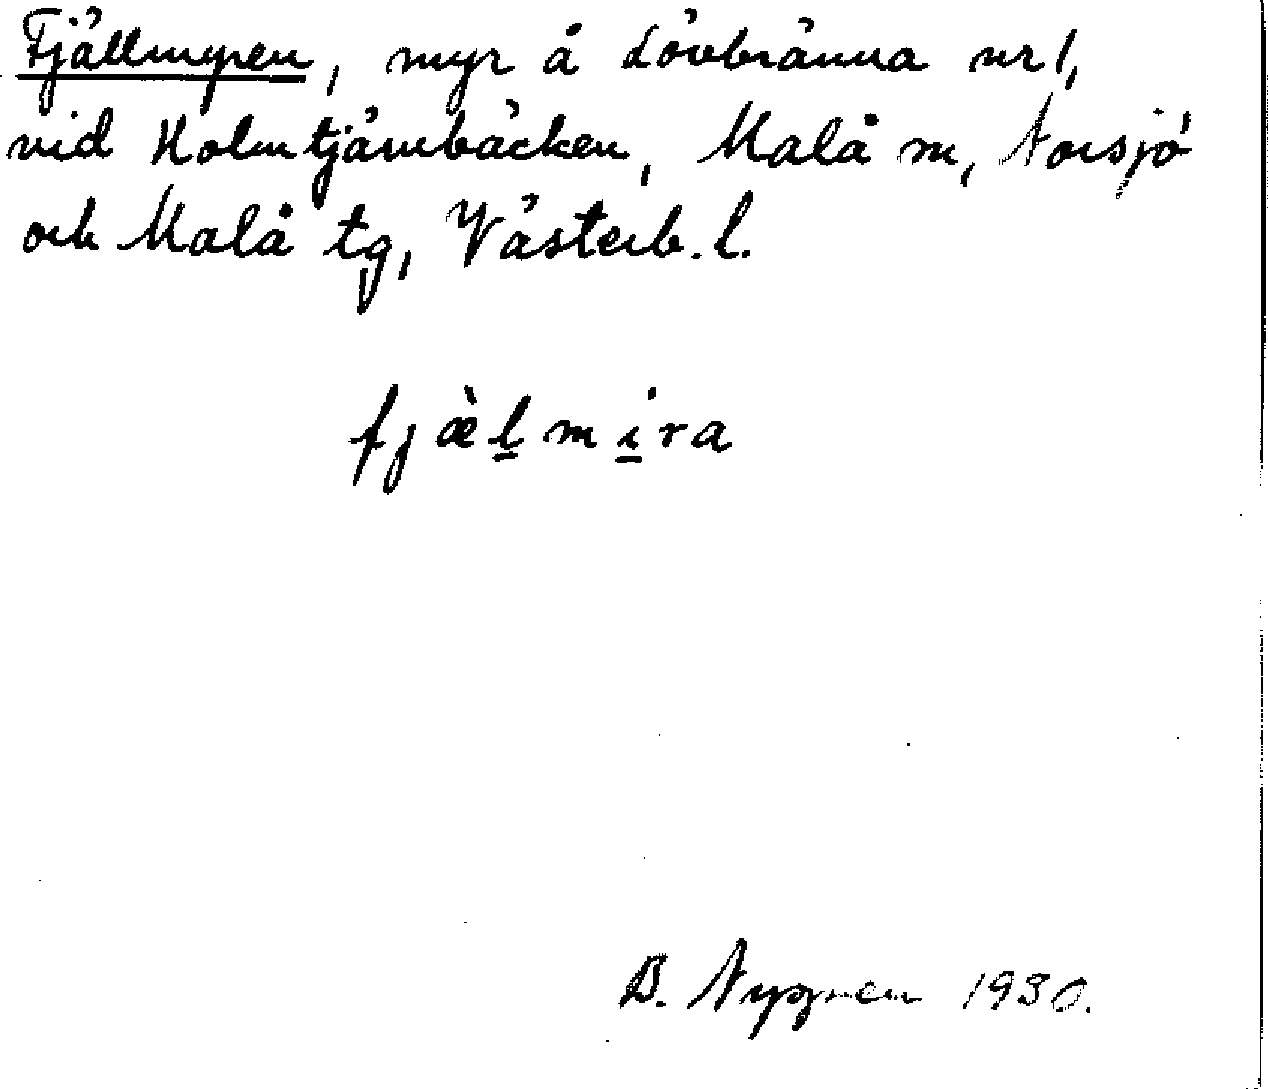 Fjällmyren, myr å Lövbränna nr 1,
vid Holmtjärnbäcken, Malå sn, Norsjö
och Malå tg, Västerb. l.
fjæ̀l̲mi̲ra
B. Nygren 1930.